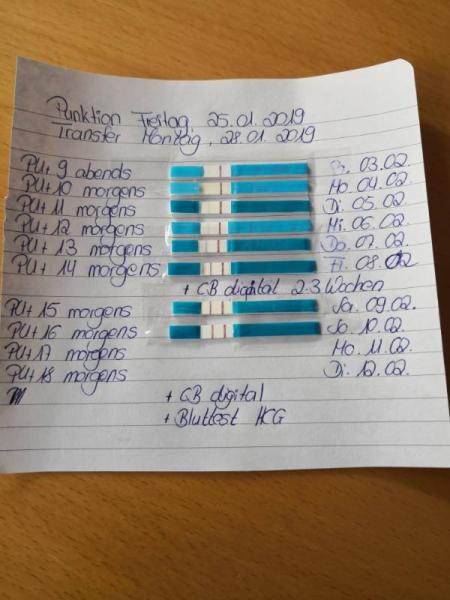 Punktion Freitag, 25.01.2019
Transfer Montag, 28.01.2019
PU+ 9 abends So. 03.02.
PU+ 10 morgens Mo. 04.02.
PU+ 11 morgens Di. 05.02.
PU+ 12 morgens Mi. 06.02.
PU+ 13 morgens Do. 07.02.
PU+ 14 morgens Fr. 08.02
+ CB digital 2-3 Wochen
PU+ 15 morgens Sa. 09.02.
PU+ 16 morgens So. 10.02.
PU+ 17 morgens Mo. 11.02.
PU+ 18 morgens Di. 12.02.
+ CB digital
+ Bluttest HCG